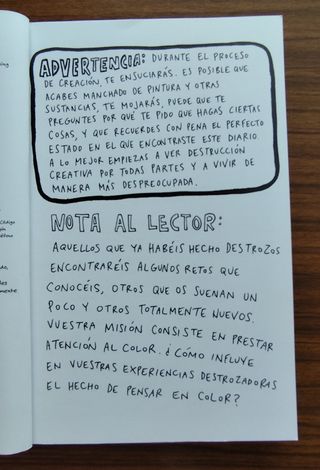 ADVERTENCIA: DURANTE EL PROCESO
DE CREACIÓN, TE ENSUCIARÁS. ES POSIBLE QUE
ACABES MANCHADO DE PINTURA Y OTRAS
SUSTANCIAS, TE MOJARÁS, PUEDE QUE TE
PREGUNTES POR QUÉ TE PIDO QUE HAGAS CIERTAS
COSAS, Y QUE RECUERDES CON PENA EL PERFECTO
ESTADO EN EL QUE ENCONTRASTE ESTE DIARIO.
A LO MEJOR EMPIEZAS A VER DESTRUCCIÓN
CREATIVA POR TODAS PARTES Y A VIVIR DE
MANERA MÁS DESPREOCUPADA.
NOTA AL LECTOR:
AQUELLOS QUE YA HABÉIS HECHO DESTROZOS
ENCONTRARÉIS ALGUNOS RETOS QUE
CONOCÉIS, OTROS QUE OS SUENAN UN
POCO Y OTROS TOTALMENTE NUEVOS.
VUESTRA MISIÓN CONSISTE EN PRESTAR
ATENCIÓN AL COLOR. ¿CÓMO INFLUYE
EN VUESTRAS EXPERIENCIAS DESTROZADORAS
EL HECHO DE PENSAR EN COLOR?